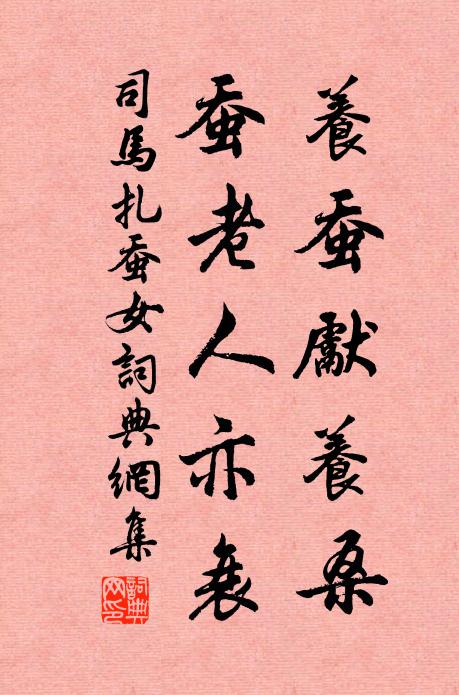 養蚕獻養桑
蚕老人亦衰
司馬扎蚕女詞典網集
詞典
网印